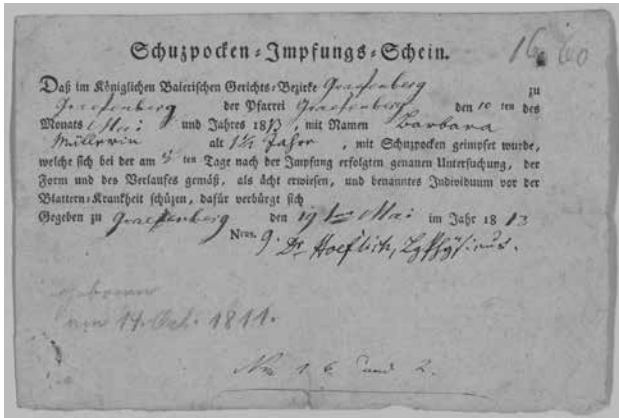 Schuzpocken-Impfungs-Schein. 16. 60
Daß im Königlichen Baierischen Gerichts-Bezirke Graefenberg zu
Graefenberg der Pfarrei Graefenberg den 10 ten des
Monats Mai und Jahres 1813, mit Namen Barbara
Müllerin alt 1½ Jahr, mit Schuzpocken geimpfet wurde,
welche sich bei der am ten Tage nach der Impfung erfolgten genauen Untersuchung, der
Form und des Verlaufes gemäß, als ächt erwiesen, und benanntes Individuum vor der
Blattern-Krankheit schüzen, dafür verbürgt sich
Gegeben zu Graefenberg den 19 Mai im Jahr 1813
Nrus. 9. Dr Hoeflich, LgPhysicus.
geboren
am 14. Oct. 1811.
1 6 und 2.